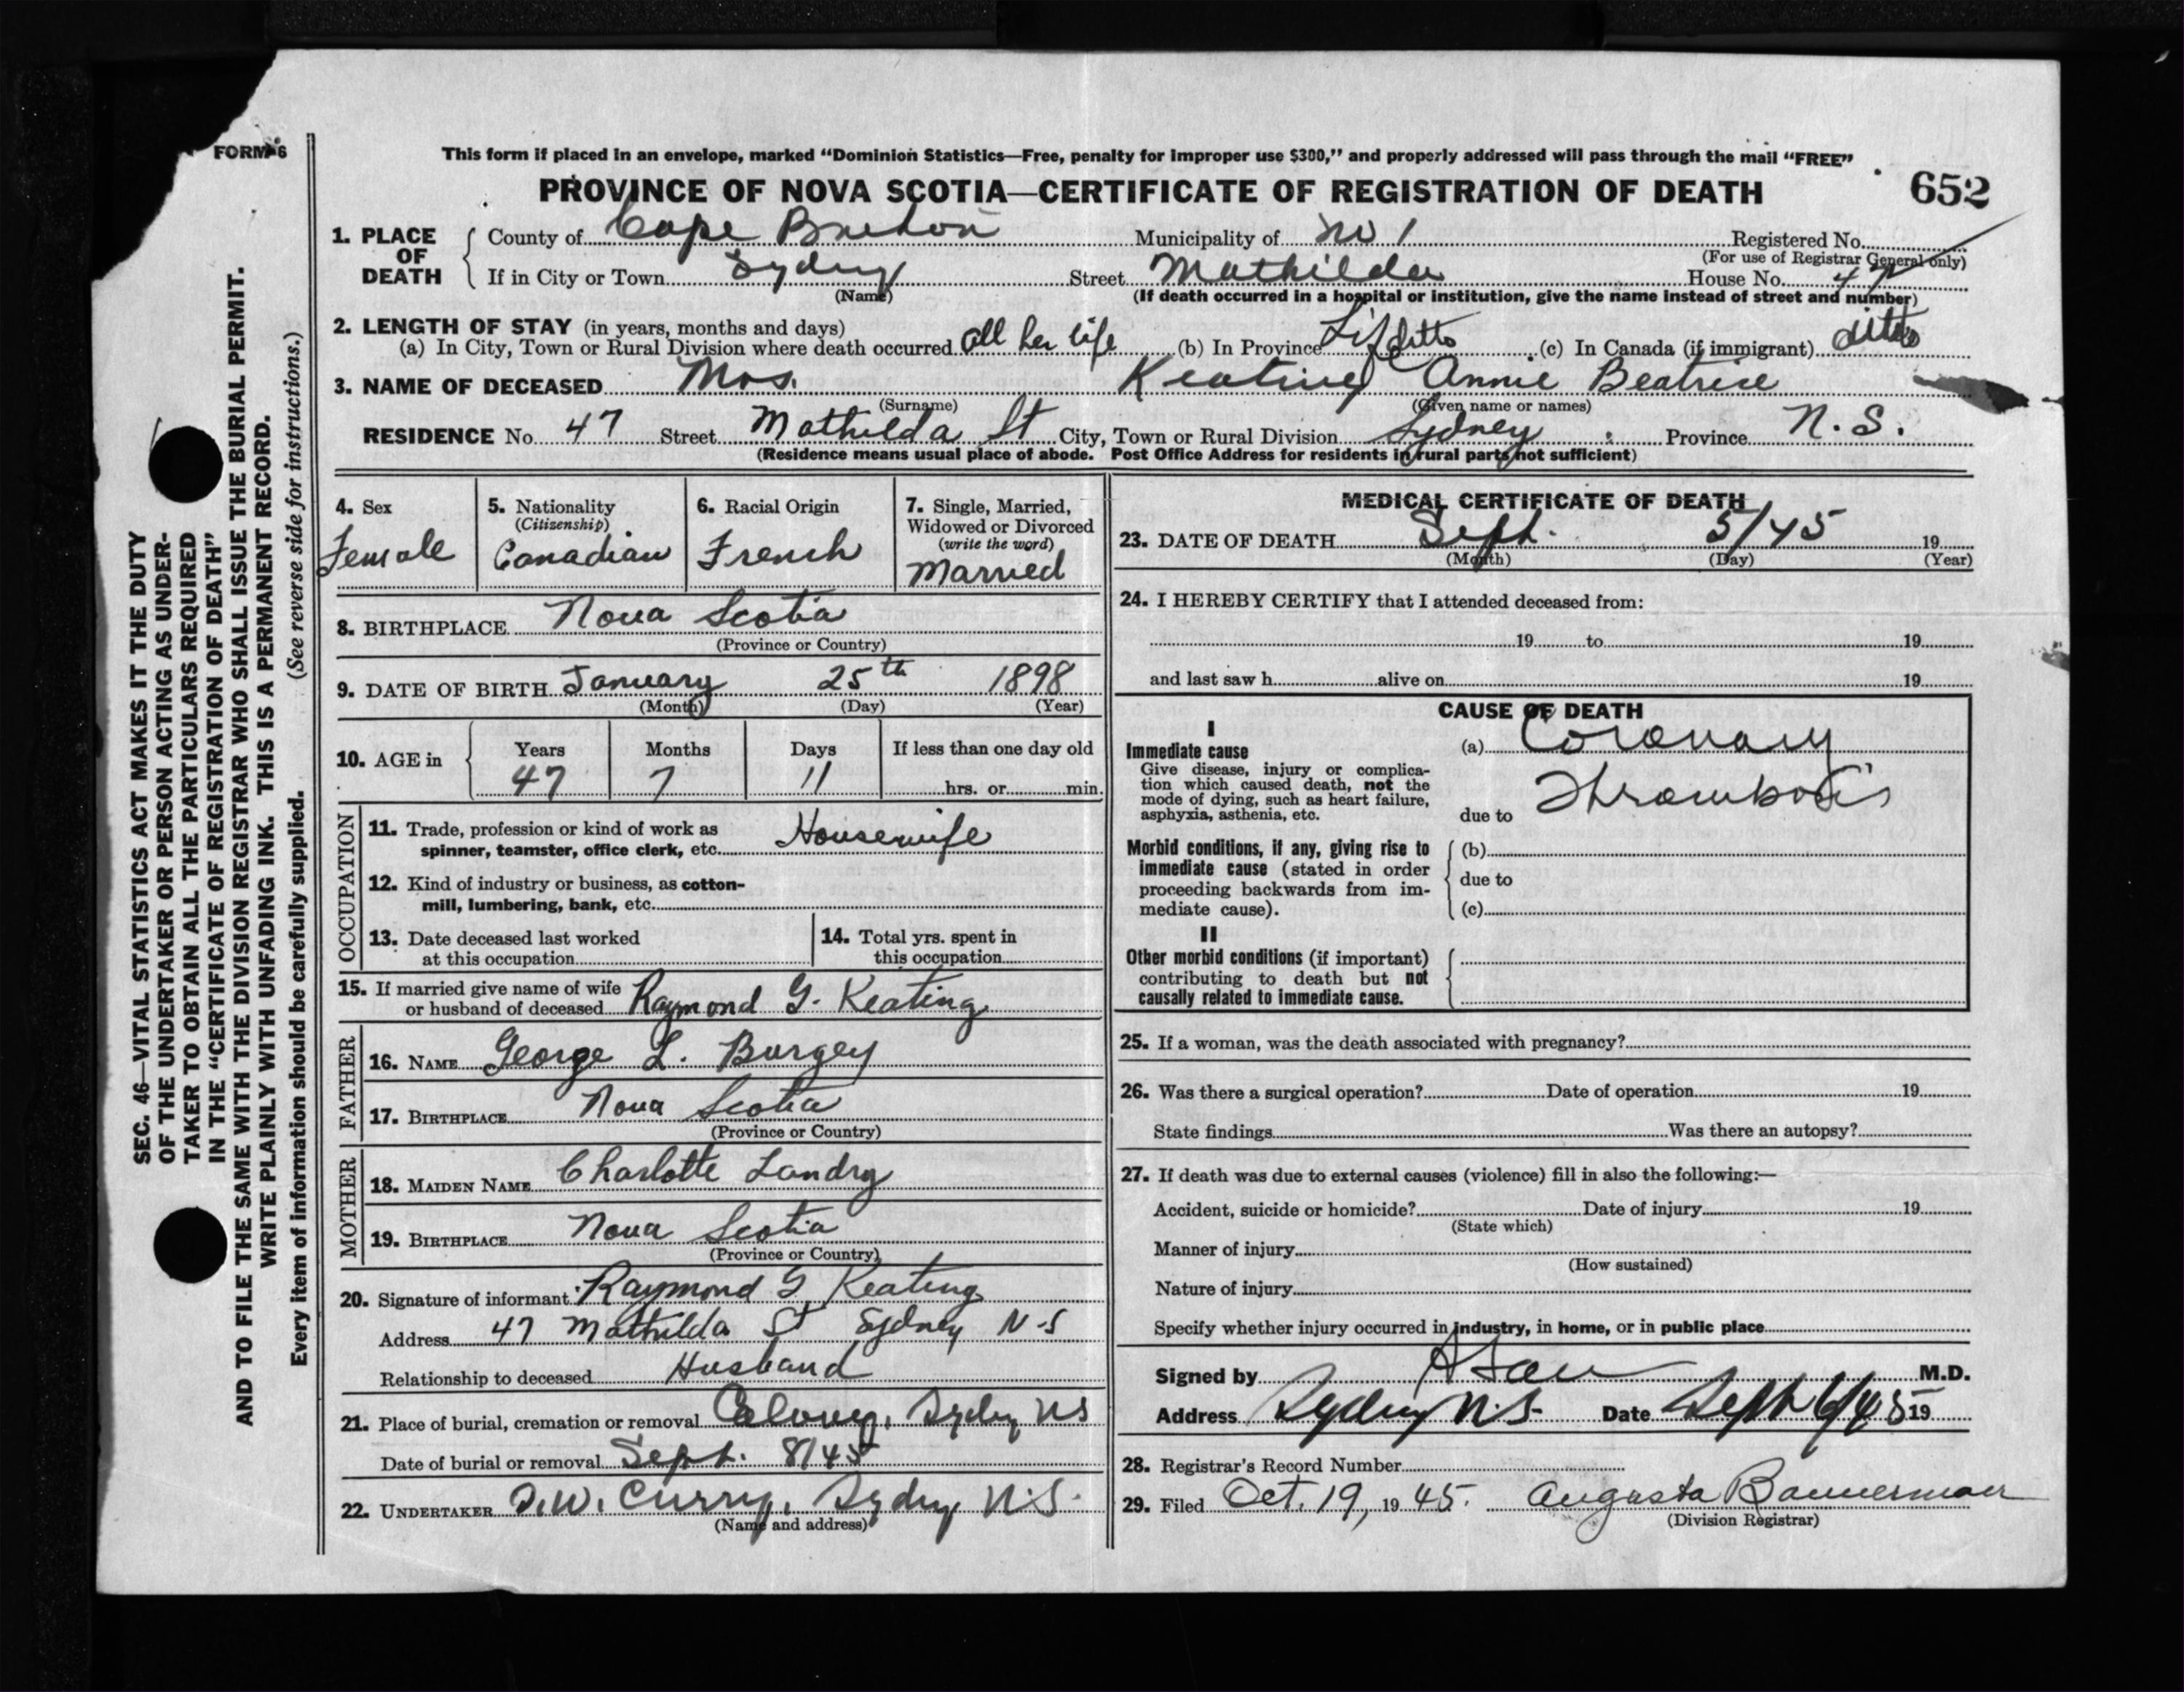 FORM 6
This form if placed in an envelope, marked "Dominion Statistics—Free, penalty for improper use $300," and properly addressed will pass through the mail "FREE"
PROVINCE OF NOVA SCOTIA—CERTIFICATE OF REGISTRATION OF DEATH 652
1. PLACE OF DEATH
County of Cape Breton Municipality of No 1 Registered No.
(For use of Registrar General only)
If in City or Town Sydney Street Mathilda House No. 47
(Name) (If death occurred in a hospital or institution, give the name instead of street and number)
2. LENGTH OF STAY (in years, months and days)
(a) In City, Town or Rural Division where death occurred all her life (b) In Province ditto (c) In Canada (if immigrant) ditto
3. NAME OF DECEASED Mrs. Keating Annie Beatrice
(Surname) (Given name or names)
RESIDENCE No. 47 Street Mathilda St City, Town or Rural Division Sydney Province N.S.
(Residence means usual place of abode. Post Office Address for residents in rural parts not sufficient)
4. Sex
Female
5. Nationality
(Citizenship)
Canadian
6. Racial Origin
French
7. Single, Married,
Widowed or Divorced
(write the word)
Married
8. BIRTHPLACE Nova Scotia
(Province or Country)
9. DATE OF BIRTH January 25th 1898
(Month) (Day) (Year)
10. AGE in Years Months Days If less than one day old
47 7 11 hrs. or min.
OCCUPATION
11. Trade, profession or kind of work as
spinner, teamster, office clerk, etc. Housewife
12. Kind of industry or business, as cotton-
mill, lumbering, bank, etc.
13. Date deceased last worked
at this occupation
14. Total yrs. spent in
this occupation
15. If married give name of wife
or husband of deceased Raymond G. Keating
FATHER
16. NAME George L. Burgey
17. BIRTHPLACE Nova Scotia
(Province or Country)
MOTHER
18. MAIDEN NAME Charlotte Landry
19. BIRTHPLACE Nova Scotia
(Province or Country)
20. Signature of informant Raymond G Keating
Address 47 Mathilda St Sydney N.S
Relationship to deceased Husband
21. Place of burial, cremation or removal Calvary, Sydney NS
Date of burial or removal Sept. 8/45
22. UNDERTAKER Curry, Sydney N.S.
(Name and address)
MEDICAL CERTIFICATE OF DEATH
23. DATE OF DEATH Sept. 5/45 19
(Month) (Day) (Year)
24. I HEREBY CERTIFY that I attended deceased from:
19 to 19
and last saw h alive on 19
CAUSE OF DEATH
I
Immediate cause
Give disease, injury or complica-
tion which caused death, not the
mode of dying, such as heart failure,
asphyxia, asthenia, etc.
(a) Coronary
due to Thrombosis
Morbid conditions, if any, giving rise to
immediate cause (stated in order
proceeding backwards from im-
mediate cause).
(b)
due to
(c)
II
Other morbid conditions (if important)
contributing to death but not
causally related to immediate cause.
25. If a woman, was the death associated with pregnancy?
26. Was there a surgical operation? Date of operation 19
State findings Was there an autopsy?
27. If death was due to external causes (violence) fill in also the following:—
Accident, suicide or homicide? Date of injury 19
(State which)
Manner of injury
(How sustained)
Nature of injury
Specify whether injury occurred in industry, in home, or in public place
Signed by M.D.
Address Sydney N.S. Date Sept 6/45 19
28. Registrar's Record Number
29. Filed Oct. 19, 1945. Augusta Bannerman
(Division Registrar)
SEC. 46—VITAL STATISTICS ACT MAKES IT THE DUTY
OF THE UNDERTAKER OR PERSON ACTING AS UNDER-
TAKER TO OBTAIN ALL THE PARTICULARS REQUIRED
IN THE "CERTIFICATE OF REGISTRATION OF DEATH"
AND TO FILE THE SAME WITH THE DIVISION REGISTRAR WHO SHALL ISSUE THE BURIAL PERMIT.
WRITE PLAINLY WITH UNFADING INK. THIS IS A PERMANENT RECORD.
Every item of information should be carefully supplied. (See reverse side for instructions.)